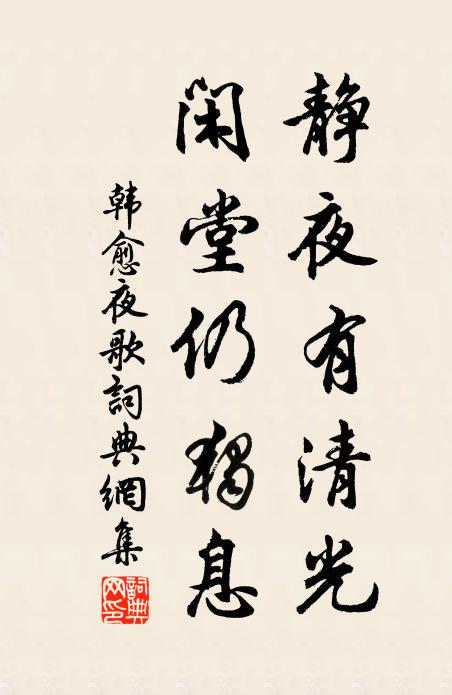 静夜有清光
闲堂仍独息
韩愈夜歌詞典網集
詞典网印